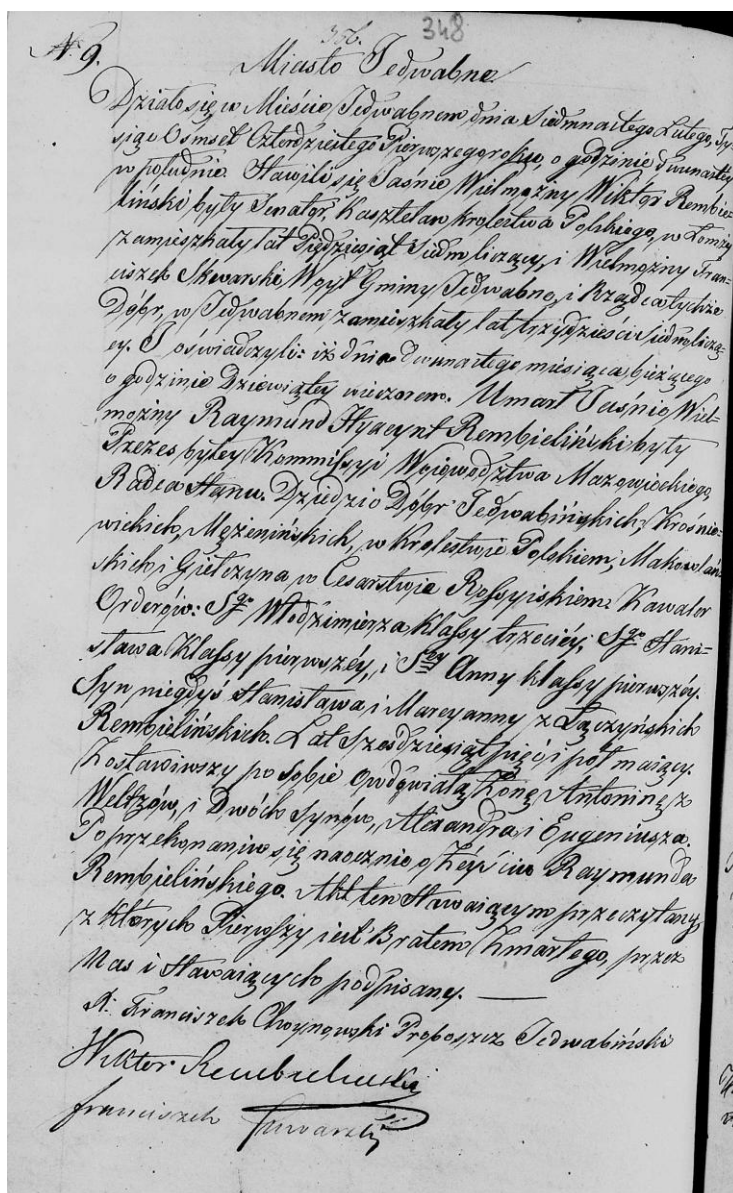 348
N. 9.
Miasto Jedwabne
Działo się w Mieście Jedwabnem dnia Siedmnastego Lutego, Ty-
siąc Osmset Czterdziestego Pierwszego roku, o godzinie dwunastey
w południe. Stawili się Jaśnie Wielmożny Wiktor Rembie-
liński były Senator, Kasztelan Krolestwa Polskiego, w Łomży
zamieszkały lat Pięćdziesiąt Siedm liczący, i Wielmożny Fran-
ciszek Skwarski Woyt Gminy Jedwabno, i Rządca tychże
Dóbr, w Jedwabnem zamieszkały lat trzydzieści Siedm liczą-
cy. I oświadczyli: iż dnia dwunastego miesiąca bieżącego
o godzinie Dziewiątey wieczorem. Umarł Jaśnie Wiel-
możny Raymund Hyacynt Rembieliński były
Prezes byłey Kommissyi Woiewództwa Mazowieckiego,
Radca Stanu. Dziedzic Dóbr Jedwabińskich, Krośnie-
wickich, Mężenińskich, w Krolestwie Polskiem, Makowlań-
skich i Giełczyna w Cesarstwie Rossyiskiem: Kawaler
Orderów: Sgo Włodzimierza klassy trzeciéy, Sgo Stani-
sława Klassy pierwszéy, i Stey Anny klassy pierwszéy.
Syn niegdyś Stanisława i Maryanny z Łączyńskich
Rembielińskich. Lat Sześdziesiąt pięć i pół maiący.
Zostawiwszy po sobie owdowiałą Żonę Antoninę z
Weltzów, i Dwóch Synów, Alexandra i Eugeniusza.
Po przekonaniu się naocznie o Zeyściu Raymunda
Rembielińskiego. Akt ten Stawaiącym przeczytany,
z których Pierwszy iest Bratem Zmarłego, przez
Nas i Stawaiących podpisany.
X. Franciszek Choynowski Proboszcz Jedwabiński
Wiktor Rembieliński
franciszek Skwarski